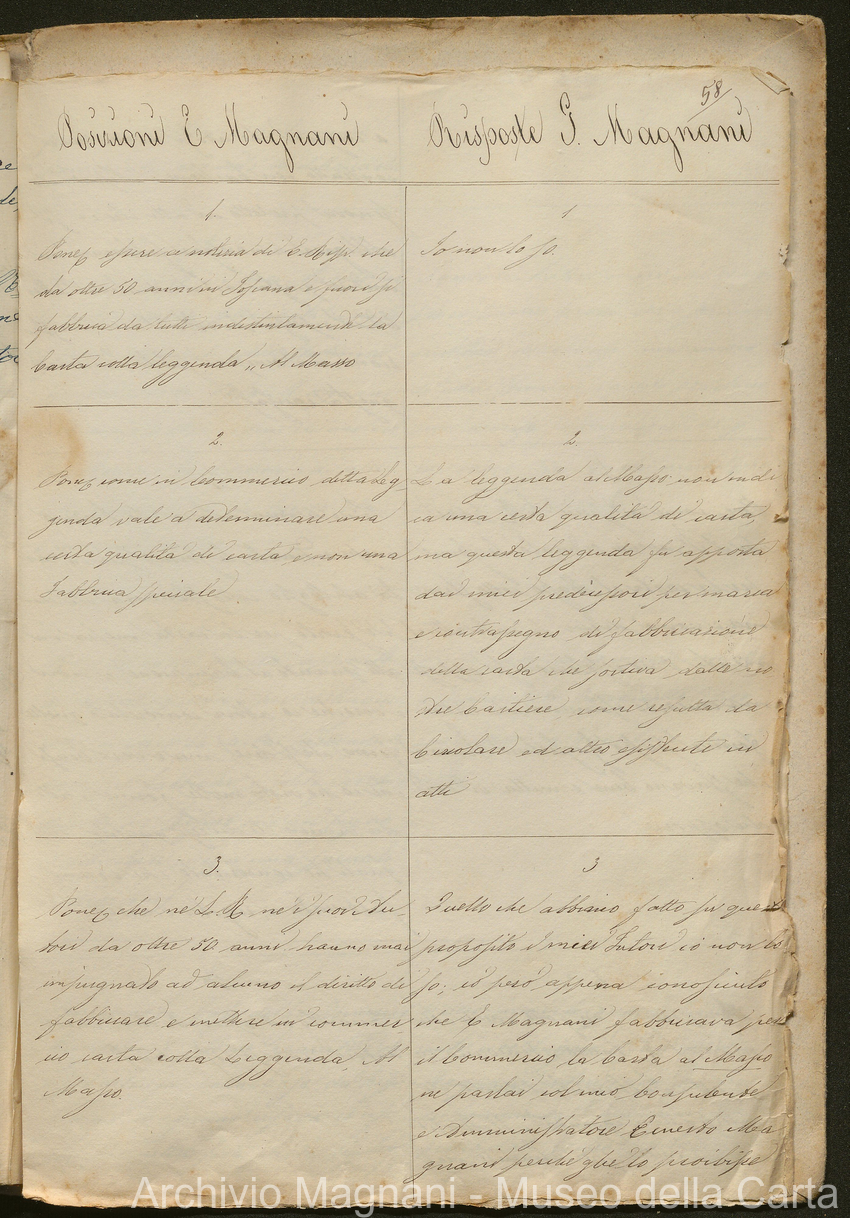 58
Posizioni E. Magnani
Risposte G. Magnani
1.
Ponez essere a notizia di E. Risp. che
da oltre 50 anni in Toscana e fuori si
fabbrica da tutti indistintamente la
Carta colla leggenda „ Al Masso
1
Io non lo so.
2.
Ponez come in Commercio detta Leg-
genda vale a determinare una
certa qualità di carta e non una
Fabbrica speciale
2.
La leggenda al Masso non indi
ca una certa qualità di carta,
ma questa leggenda fu apposta
dai miei predecessori per marca
e contrassegno di fabbricazione
della carta che sortiva dalle no
stre Cartiere come resulta da
Circolare ed altro esistente in
atti
3.
Ponez che nè L. R. nè i suoi Tu-
tori da oltre 50 anni hanno mai
impugnato ad alcuno il diritto di
fabbricare e mettere in commer
cio carta colla Leggenda, Al
Masso.
3
Quello che abbiano fatto su questo
proposito i miei Tutori io non lo
so; io però appena conosciuto
che E. Magnani fabbricava per
il Commercio la Carta al Masso
ne parlai col mio Consulente
e Amministratore Ernesto Ma
gnani perchè glie lo proibisse
Archivio Magnani - Museo della Carta